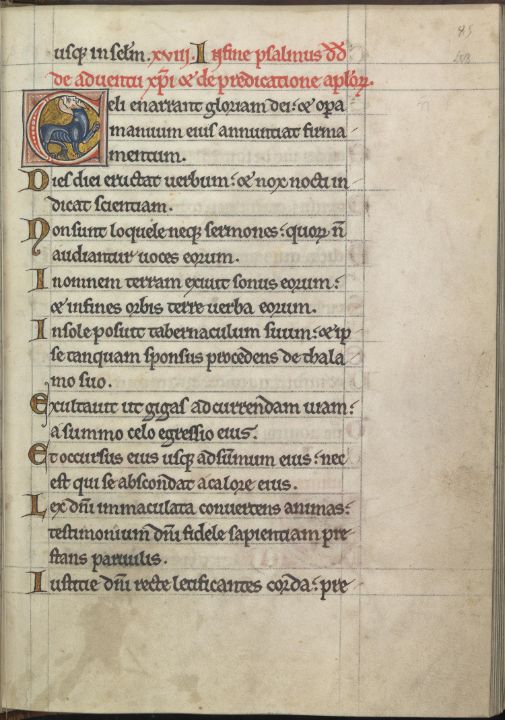 usq; in sel̄m. xviij. In fine psalmus dd̄
de aduentu xp̄i ⁊ de predicatione aplōꝝ.
Celi enarrant gloriam dei: ⁊ opa
manuum eius annuntiat firma
mentum.
Dies diei eructat uerbum: ⁊ nox nocti in
dicat scientiam.
Non sunt loquele neq; sermones: quoꝝ n̄
audiantur uoces eorum.
In omnem terram exiuit sonus eorum:
⁊ in fines orbis terre uerba eorum.
In sole posuit tabernaculum suum: ⁊ ip
se tanquam sponsus procedens de thala
mo suo.
Exultauit ut gigas ad currendam uiam:
a summo celo egressio eius.
Et occursus eius usq; ad sūmum eius: nec
est qui se abscondat a calore eius.
Lex dn̄i immaculata conuertens animas:
testimonium dn̄i fidele sapientiam pre
stans paruulis.
Iustitie dn̄i recte letificantes corda: pre